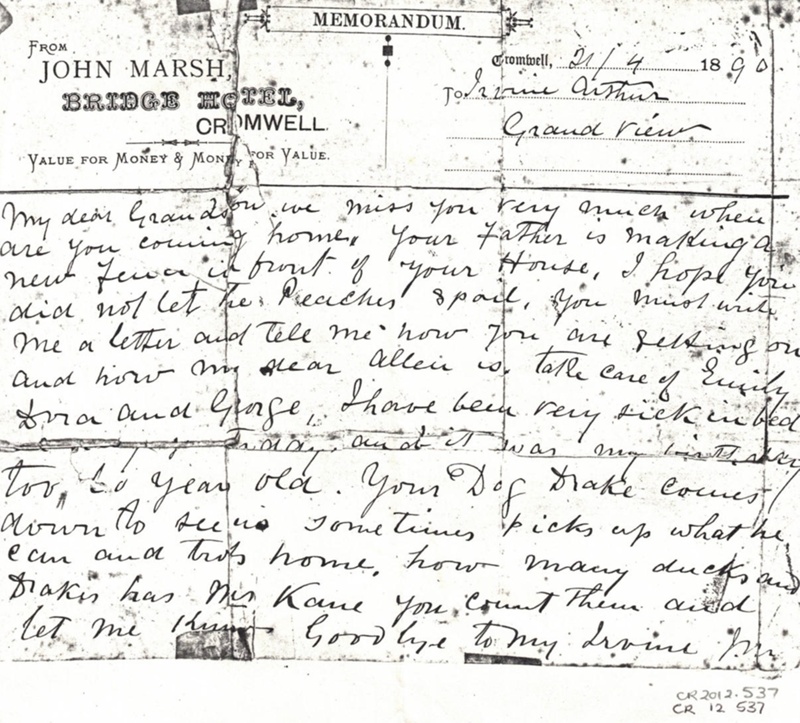 MEMORANDUM.
FROM
JOHN MARSH,
BRIDGE HOTEL,
CROMWELL.
VALUE FOR MONEY & MONEY FOR VALUE.
Cromwell, 21/4 1890
To Irvine Arthur
Grand View
My dear Grandson we miss you very much when
are you coming home, your Father is making a
new Fence in front of your House, I hope you
did not let the Peaches spoil, you must write
me a letter and tell me how you are getting on
and how my dear Allen is. take care of Emily
Dora and George, I have been very sick in bed
and it was my birthday
too, years old. Your Dog Drake comes
down to see us sometimes picks up what he
can and trots home, how many ducks and
Drakes has Mrs Kane you count them and
let me know Goodbye to my Irvine
CR2012.537
CR 12 537